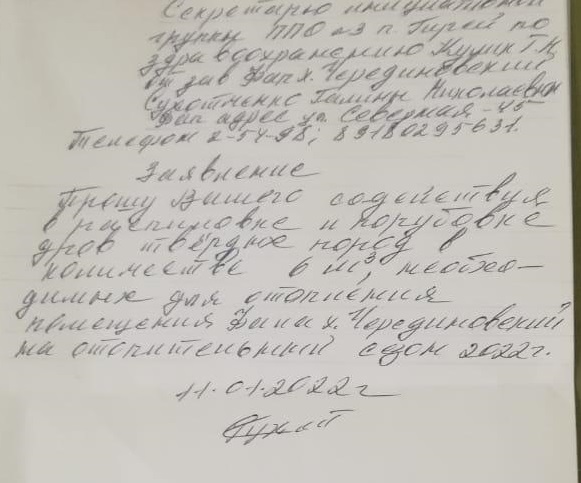 Секретарю инициативной
группы ППО №3 п. Гирей по
здравоохранению Кушик Т.Н.
от зав Фап х. Черединовский
Сухотченко Галины Николаевны
Фап адрес ул. Северная-45
Телефон 2-54-98; 89180295631.
Заявление
Прошу Вашего содействуя
в распиловке и порубовке
дров твёрдых пород в
количестве 6 м³, необхо-
димых для отопления
помещения Фапа х. Черединовский
на отопительный сезон 2022г.
11.01.2022г